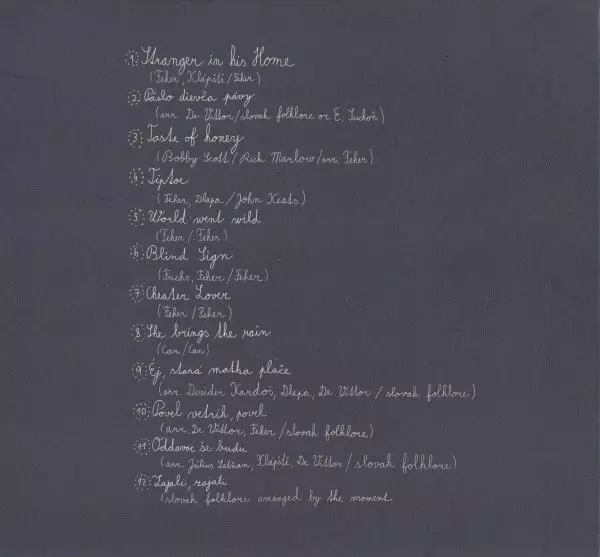 1 Stranger in his Home
(Feher, Klápště/Feher)
2 Páslo dievča pávy
(arr. De Vittor/slovak folklore or E. Suchoň)
3 Taste of honey
(Bobby Scott/Rick Marlow/arr. Feher)
4 Tiptoe
(Feher, Dlapa/John Keats)
5 World went wild
(Feher/Feher)
6 Blind Sign
(Fuchs, Feher/Feher)
7 Cheater Lover
(Feher/Feher)
8 She brings the rain
(Can/Can)
9 Ej, stará matka plače
(arr. Desider Kardoš, Dlapa, De Vittor/slovak folklore)
10 Povel vetrík, povel
(arr. De Vittor, Feher/slovak folklore)
11 Oddavac še budu
(arr. Július Letňan, Klápště, De Vittor/slovak folklore)
12 Zajali, zajali
(slovak folklore arranged by the moment